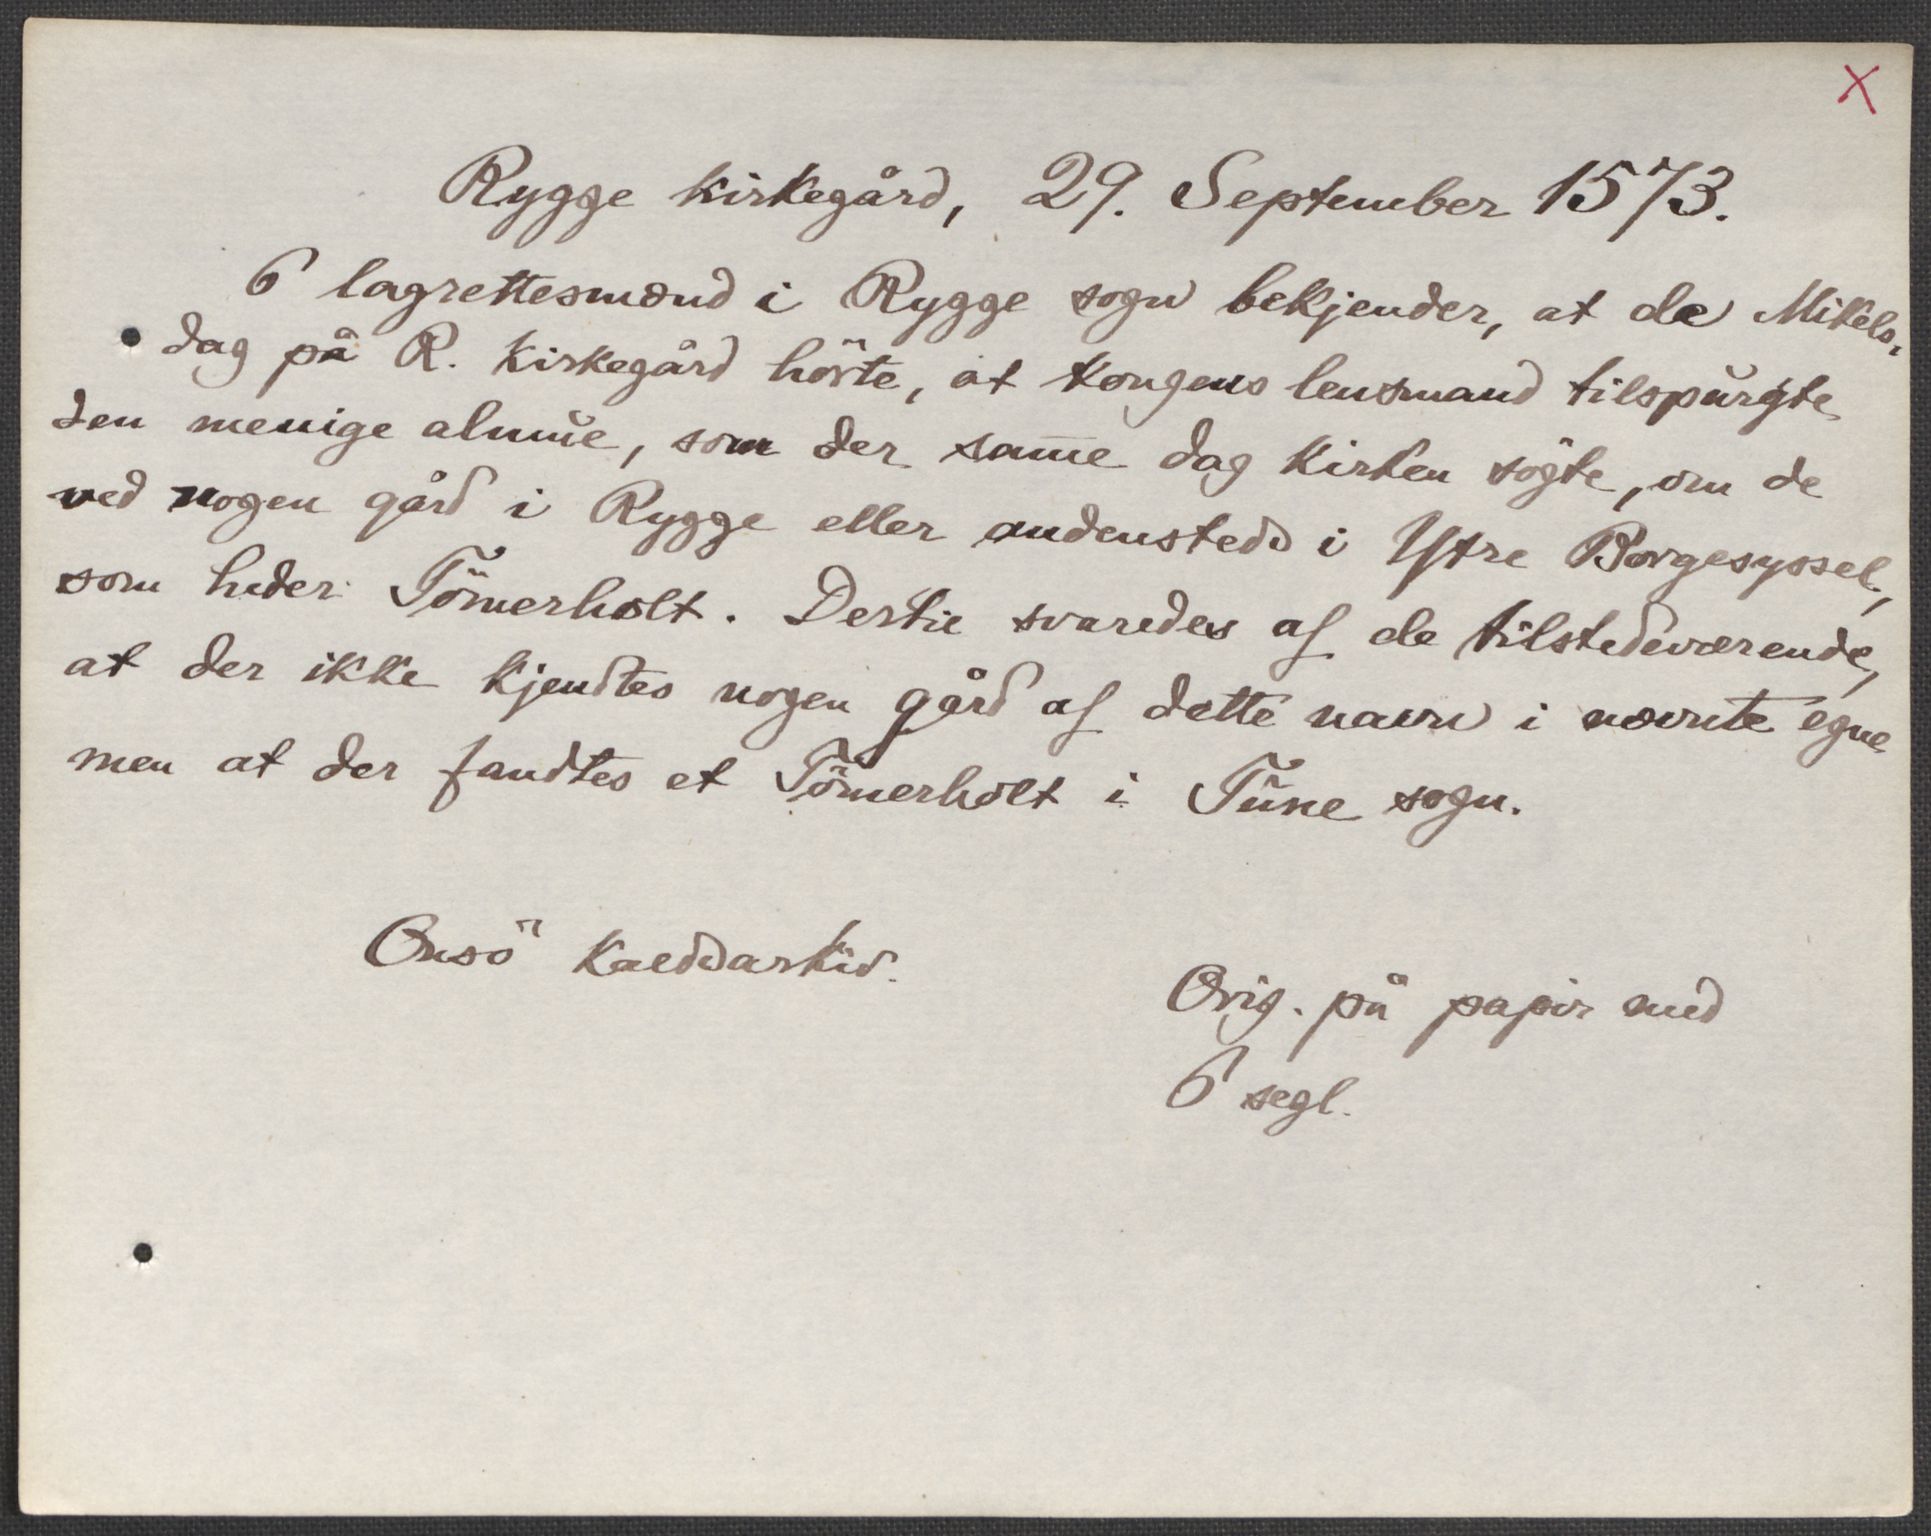 X
Rygge kirkegård, 29. September 1573.
6 lagrettesmænd i Rygge sogn bekjender, at de Mikels-
dag på R. kirkegård hörte, at kongens lensmand tilspurgte
den menige almue, som der samme dag kirken sögte, om de
ved nogen gård i Rygge eller andensteds i Ytre Borgesyssel,
som heder Tömerholt. Dertil svaredes af de tilstedeværende,
at der ikke kjendtes nogen gård af dette navn i nævnte egne
men at der fandtes et Tömerholt i Tune sogn.
Onsö
Orig. på papir med
6 segl.